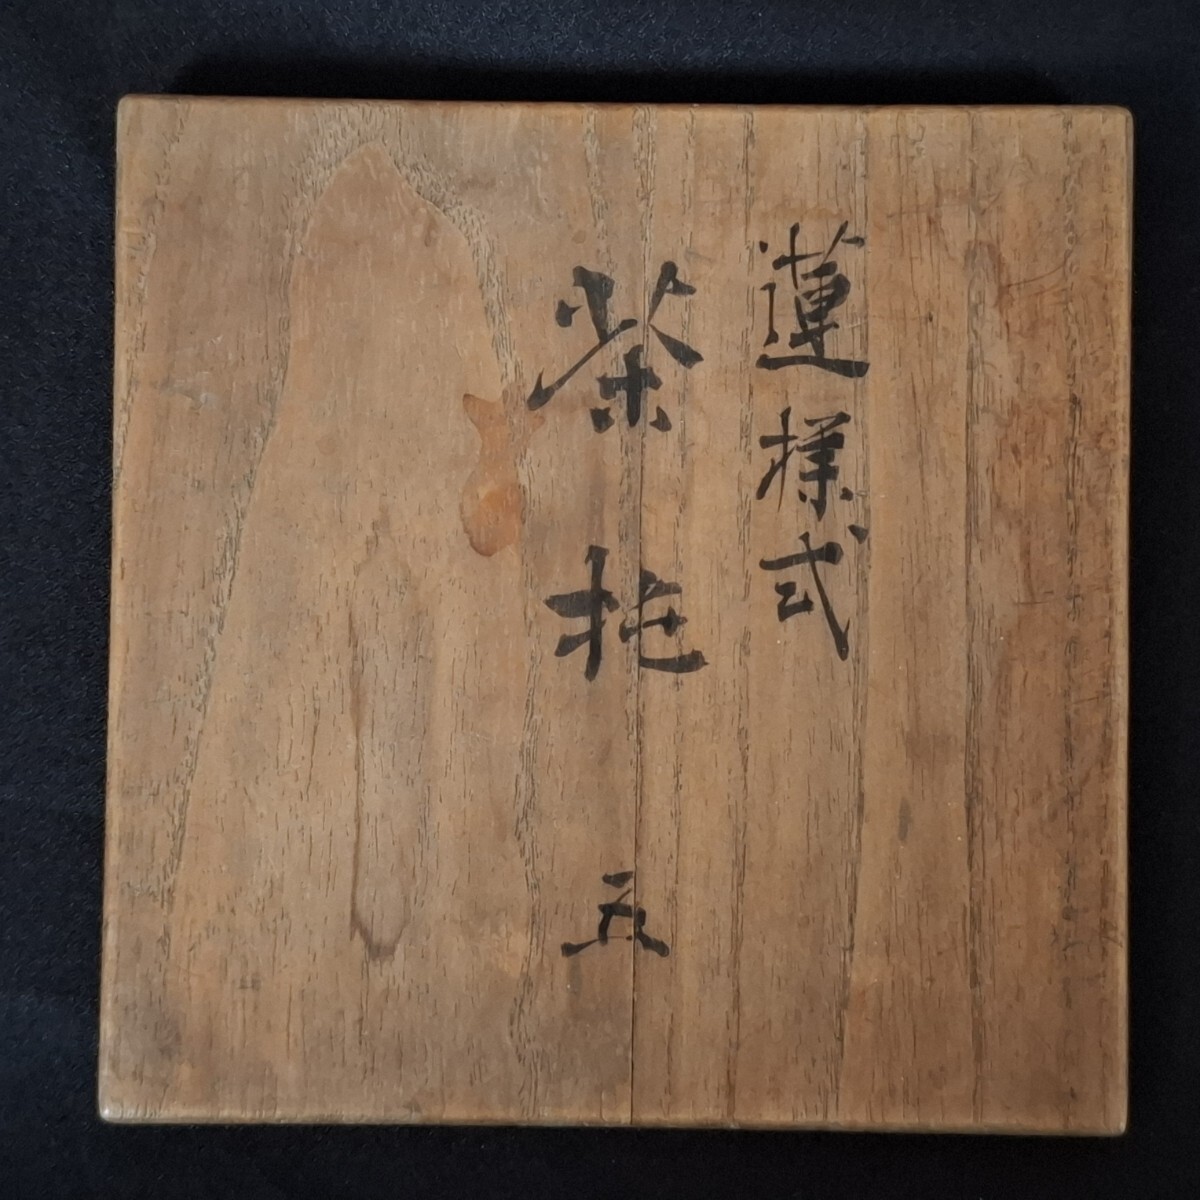 蓮様式
茶托
五